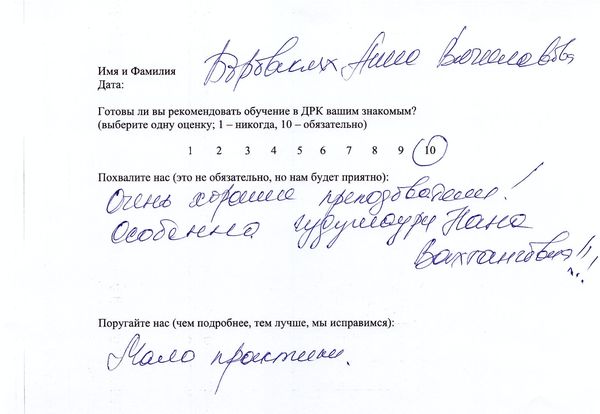 Имя и Фамилия
Анна Вячеславовна
Дата:
Готовы ли вы рекомендовать обучение в ДРК вашим знакомым?
(выберите одну оценку; 1 – никогда, 10 – обязательно)
1 2 3 4 5 6 7 8 9 10
Похвалите нас (это не обязательно, но нам будет приятно):
Очень хорошие преподователи!
Особенна Гудушаури Нана
Вахтанговна!!!
Поругайте нас (чем подробнее, тем лучше, мы исправимся):
Мало практики.